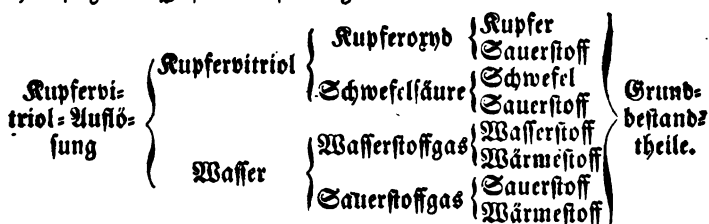 Kupfervi-
triol-Auflö-
sung
Kupfervitriol
Wasser
Kupferoxyd
Schwefelsäure
Wasserstoffgas
Sauerstoffgas
Kupfer
Sauerstoff
Schwefel
Sauerstoff
Wasserstoff
Wärmestoff
Sauerstoff
Wärmestoff
Grund-
bestand-
theile.